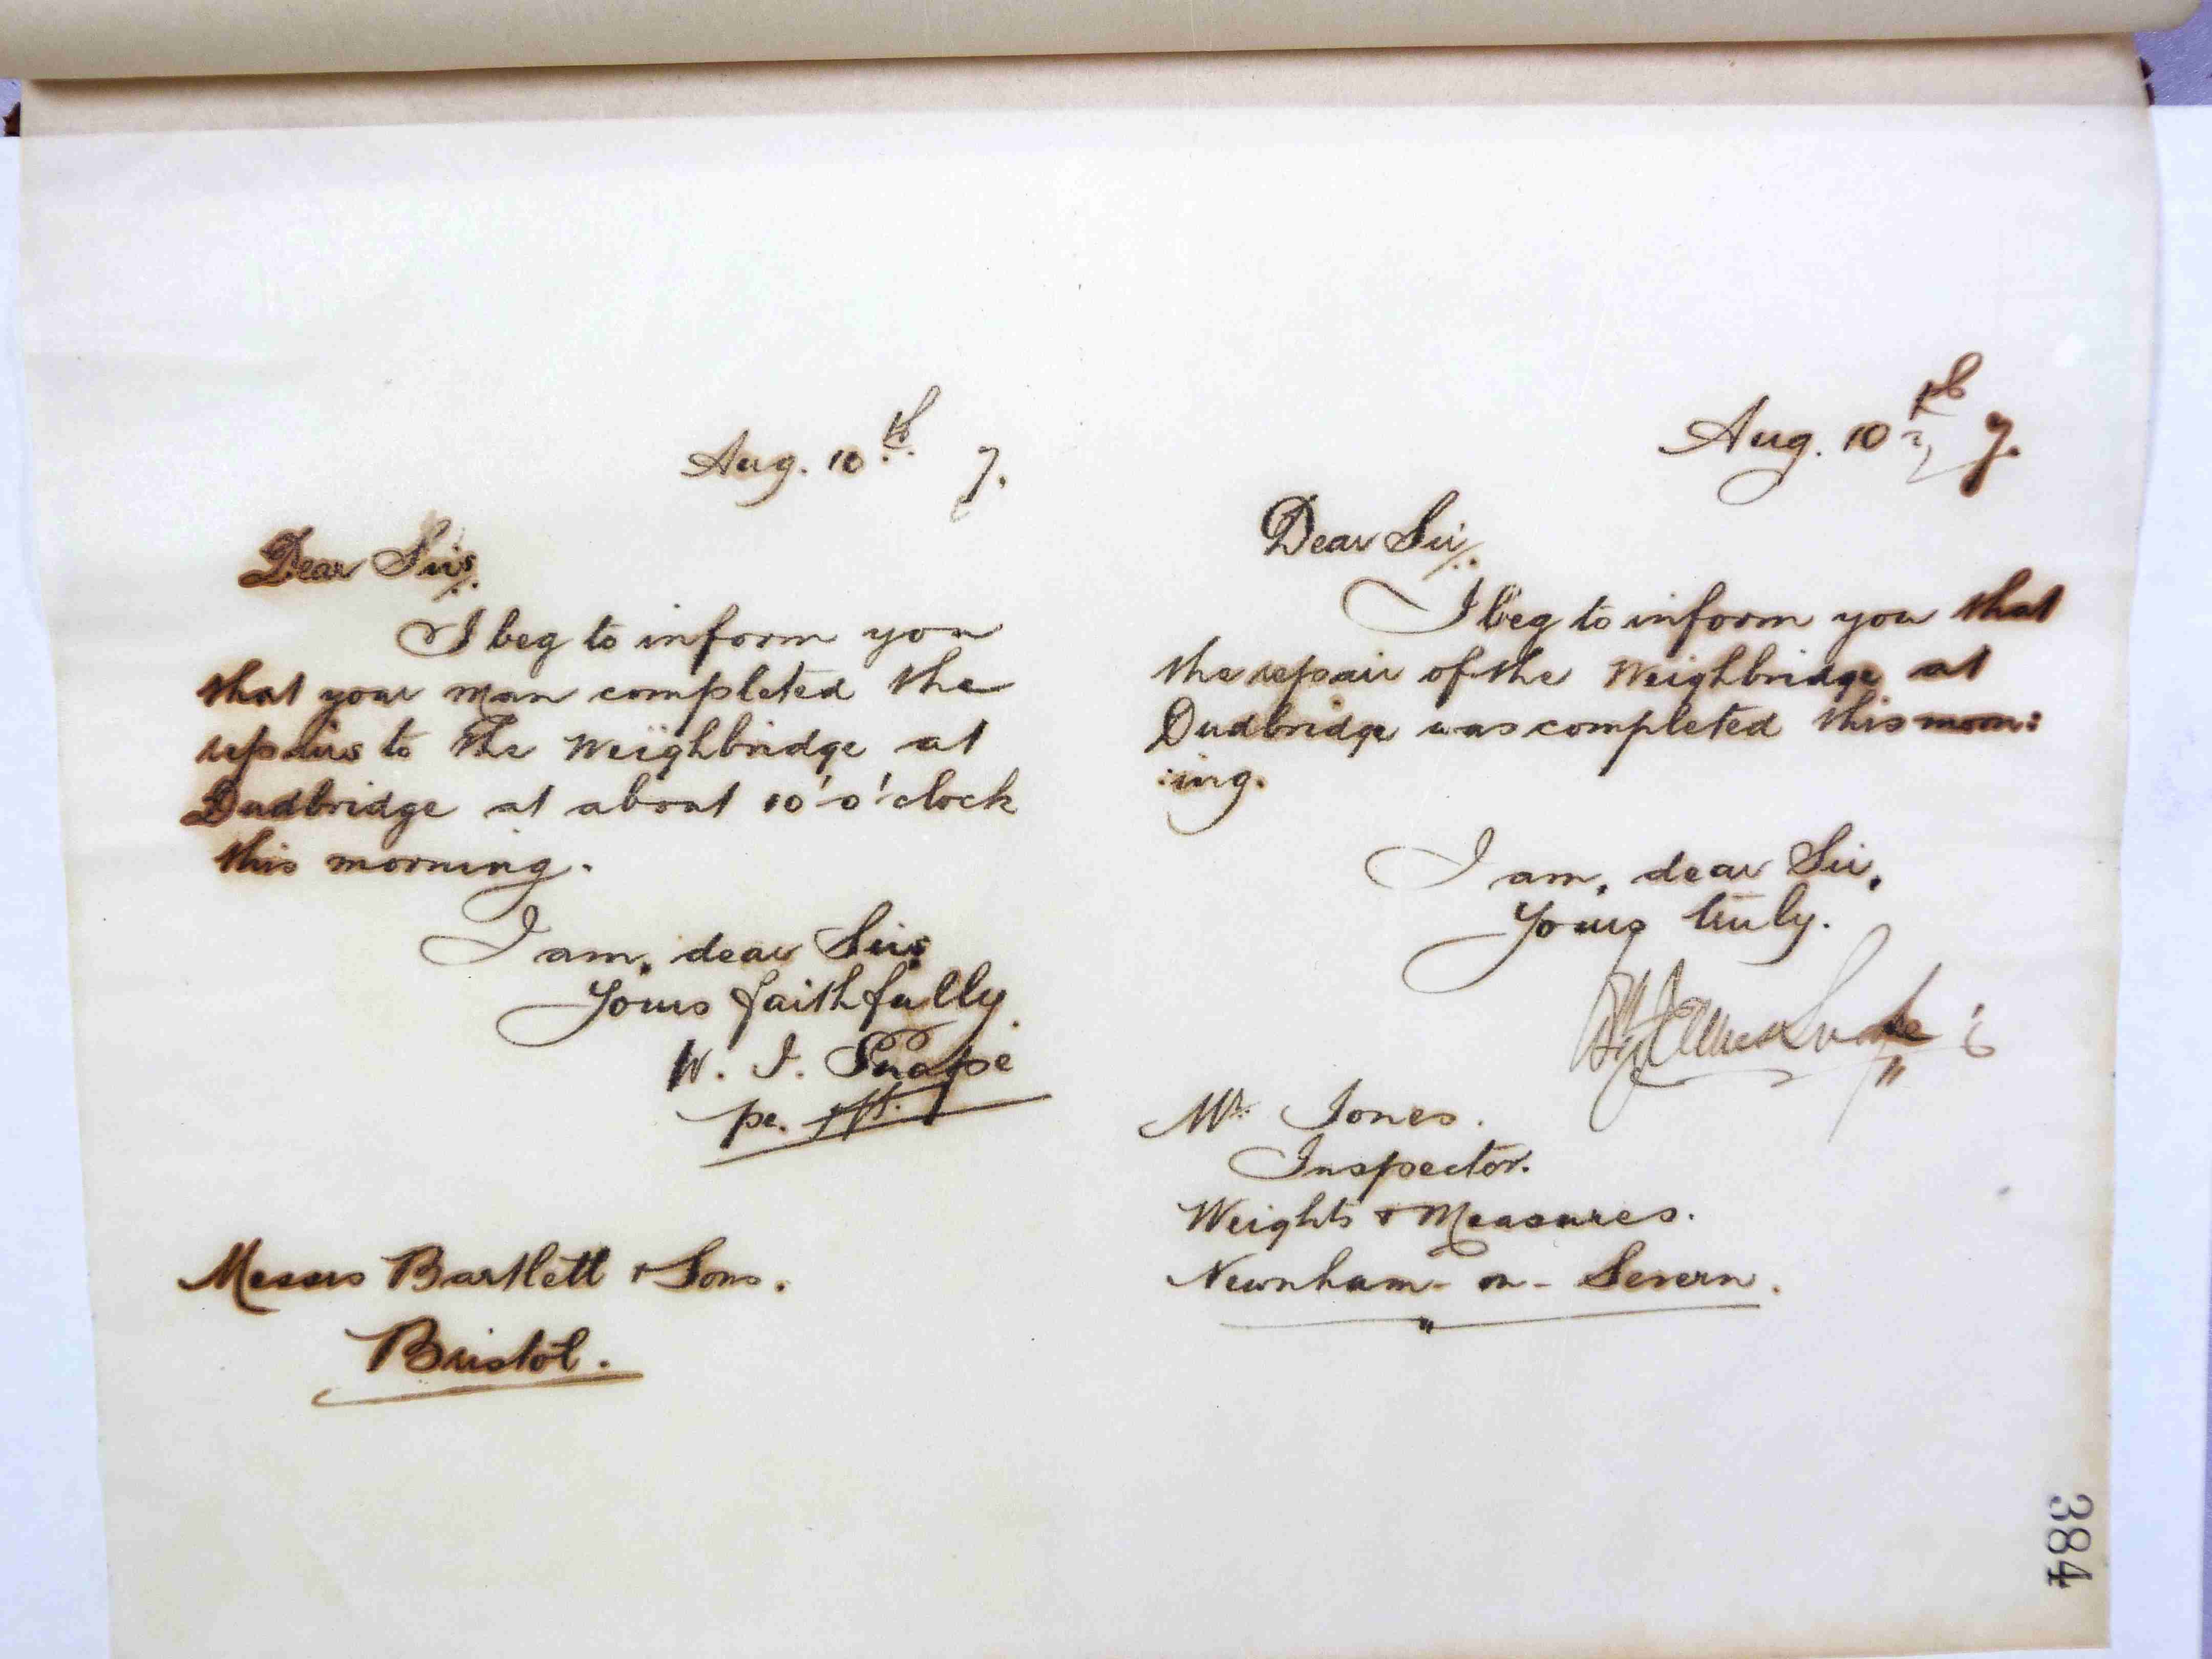 Aug. 10th 7.
Dear Sirs/.
I beg to inform you
that your man completed the
repairs to the Weighbridge at
Dudbridge at about 10 'o'clock
this morning.
I am, dear Sirs,
Yours faithfully
W. J. Snape
pe.
Messrs Bartlett & Sons.
Bristol.
Aug. 10th 7.
Dear Sir/.
I beg to inform you that
the repair of the Weighbridge at
Dudbridge was completed this morn:
:ing.
I am, dear Sir,
Yours truly.
Mr. Jones.
Inspector.
Weights & Measures.
Newnham-on-Severn.
384